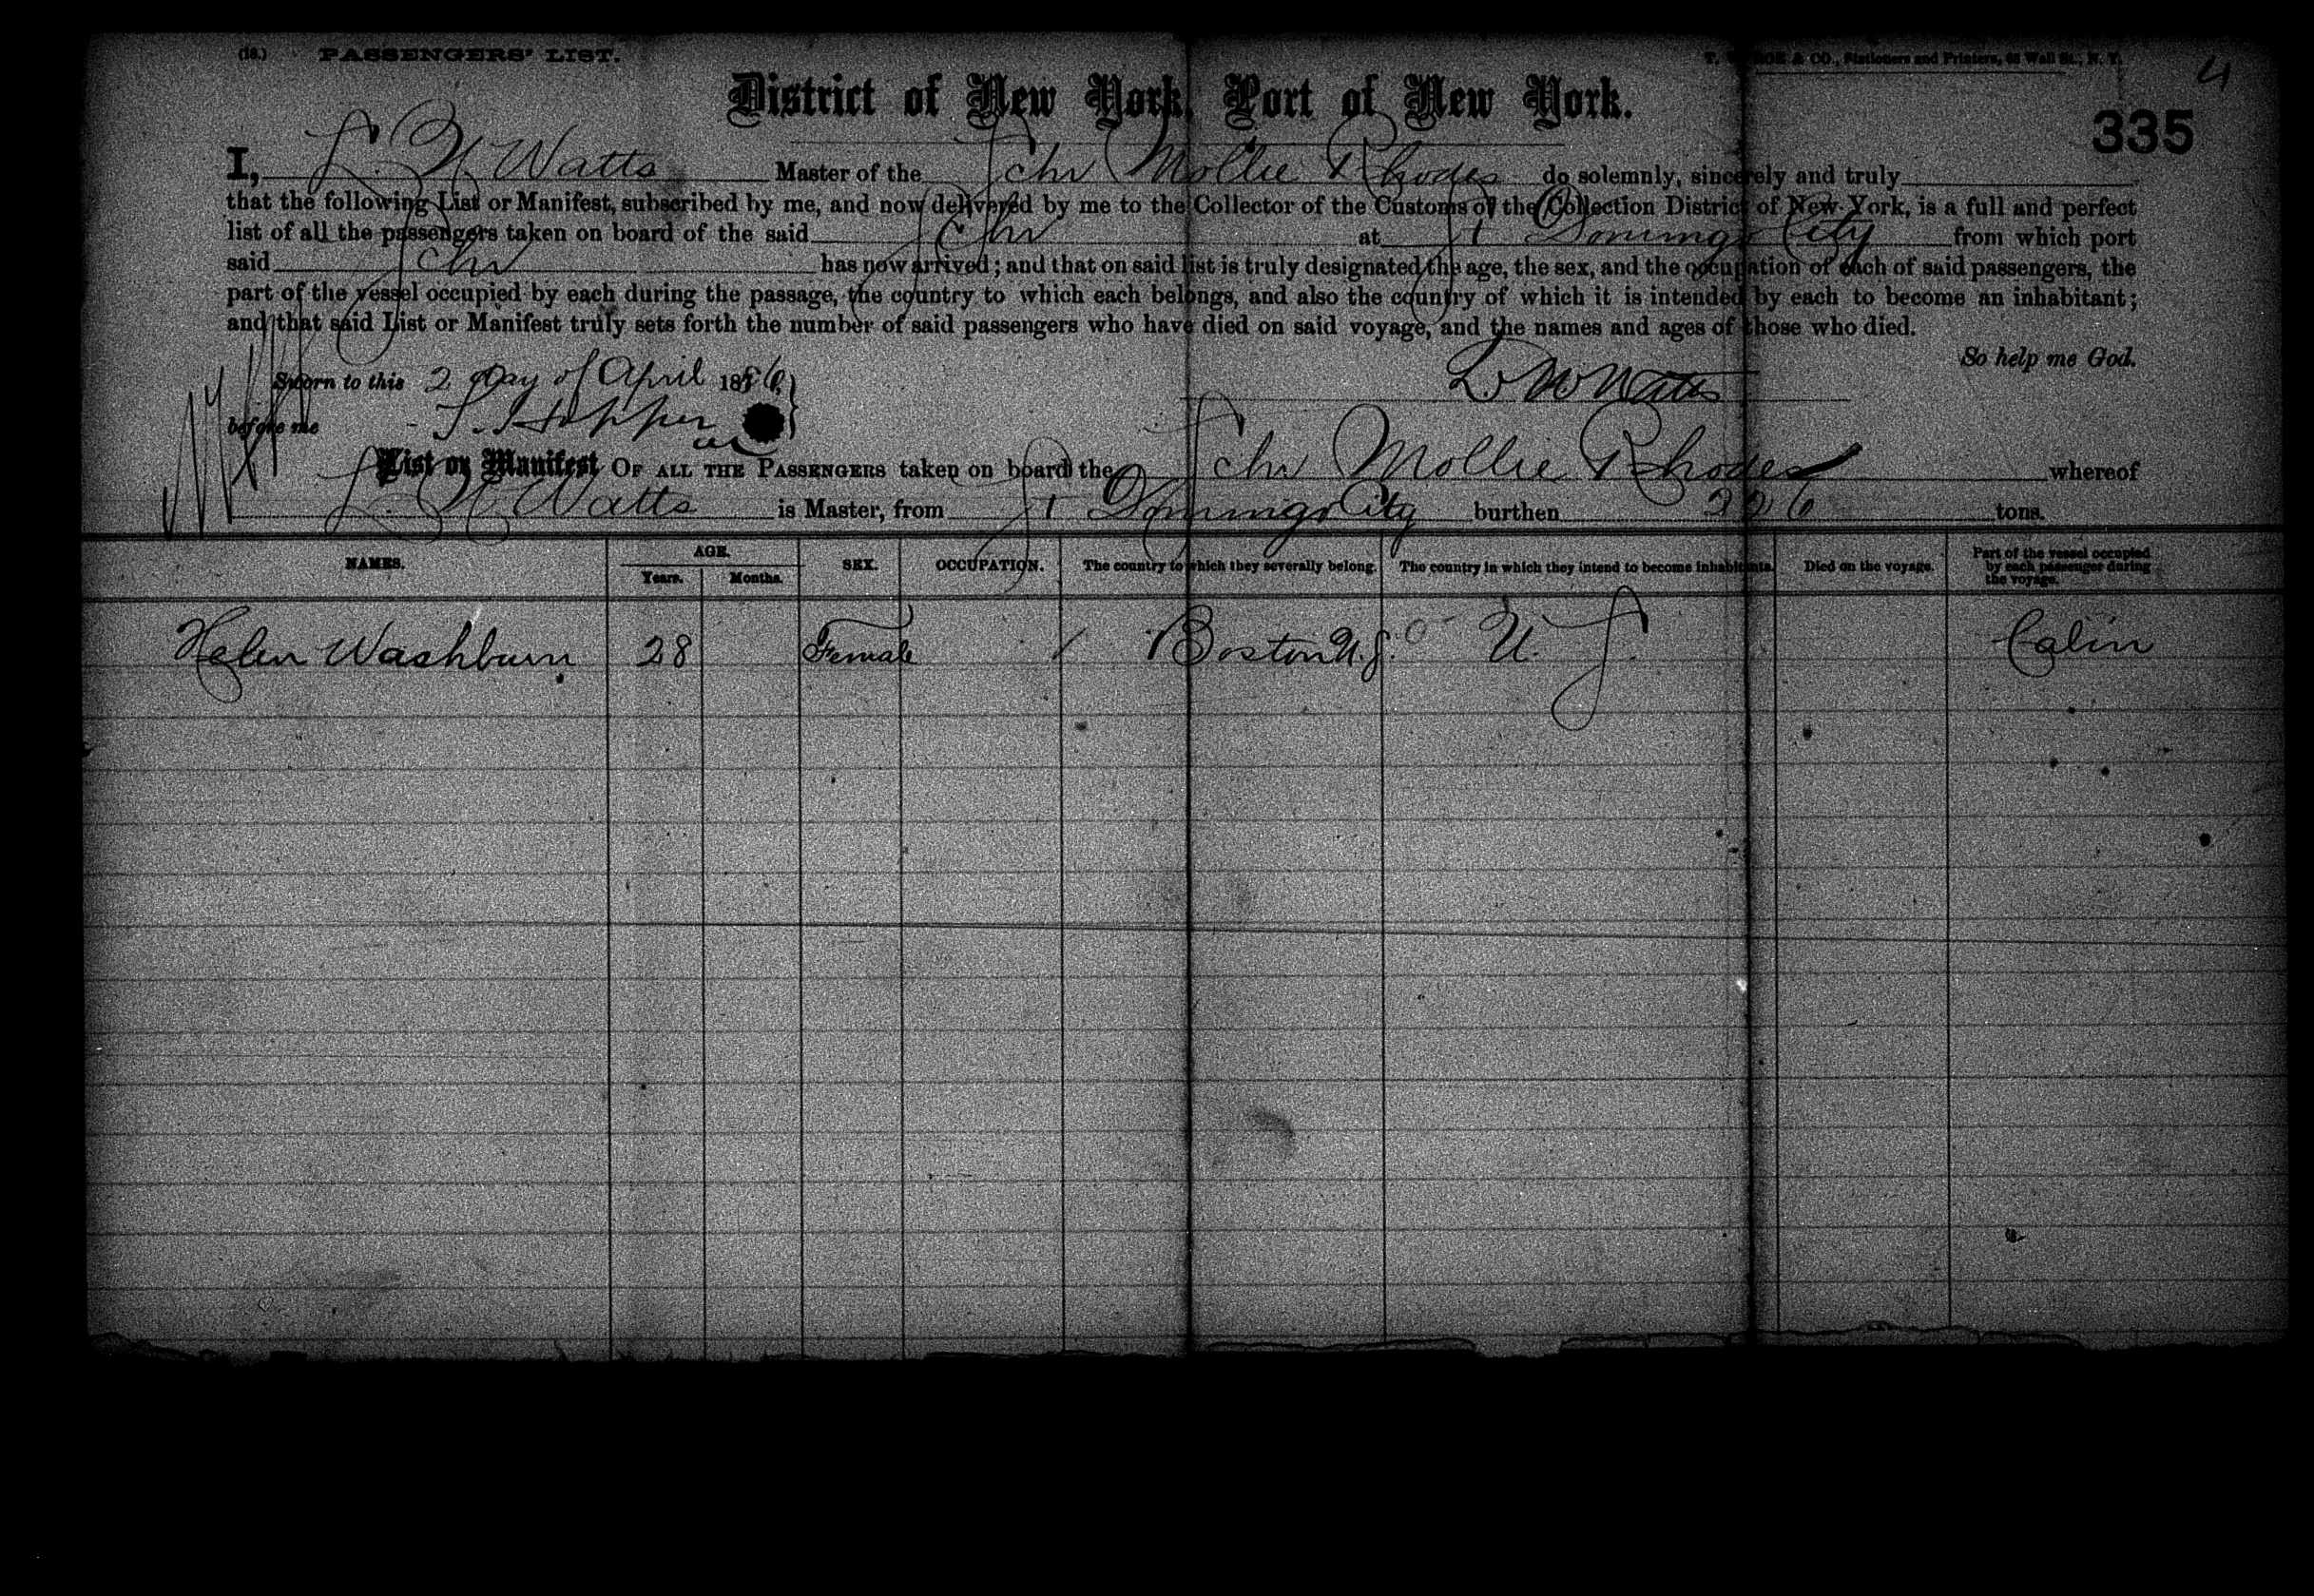 (18.) PASSENGERS' LIST.
& CO., Stationers and Printers, Wall St., N. Y.
4
District of New York, Port of New York.
335
I, Watts Master of the Schr Mollie Rhodes do solemnly, sincerely and truly
that the following List or Manifest, subscribed by me, and now delivered by me to the Collector of the Customs of the Collection District of New York, is a full and perfect
list of all the passengers taken on board of the said Schr at St Domingo City from which port
said Schr has now arrived; and that on said list is truly designated the age, the sex, and the occupation of each of said passengers, the
part of the vessel occupied by each during the passage, the country to which each belongs, and also the country of which it is intended by each to become an inhabitant;
and that said List or Manifest truly sets forth the number of said passengers who have died on said voyage, and the names and ages of those who died.
So help me God.
Sworn to this 2 day of April 1886
Watts
before me Hopper
List or Manifest OF ALL THE PASSENGERS taken on board the Schr Mollie Rhodes whereof
Watts is Master, from St Domingo City burthen 226 tons.
NAMES. AGE. Years. Months. SEX. OCCUPATION. The country to which they severally belong. The country in which they intend to become inhabitants. Died on the voyage. Part of the vessel occupied by each passenger during the voyage.
Helen Washburn 28 Female / Boston U.S. U. S. Cabin